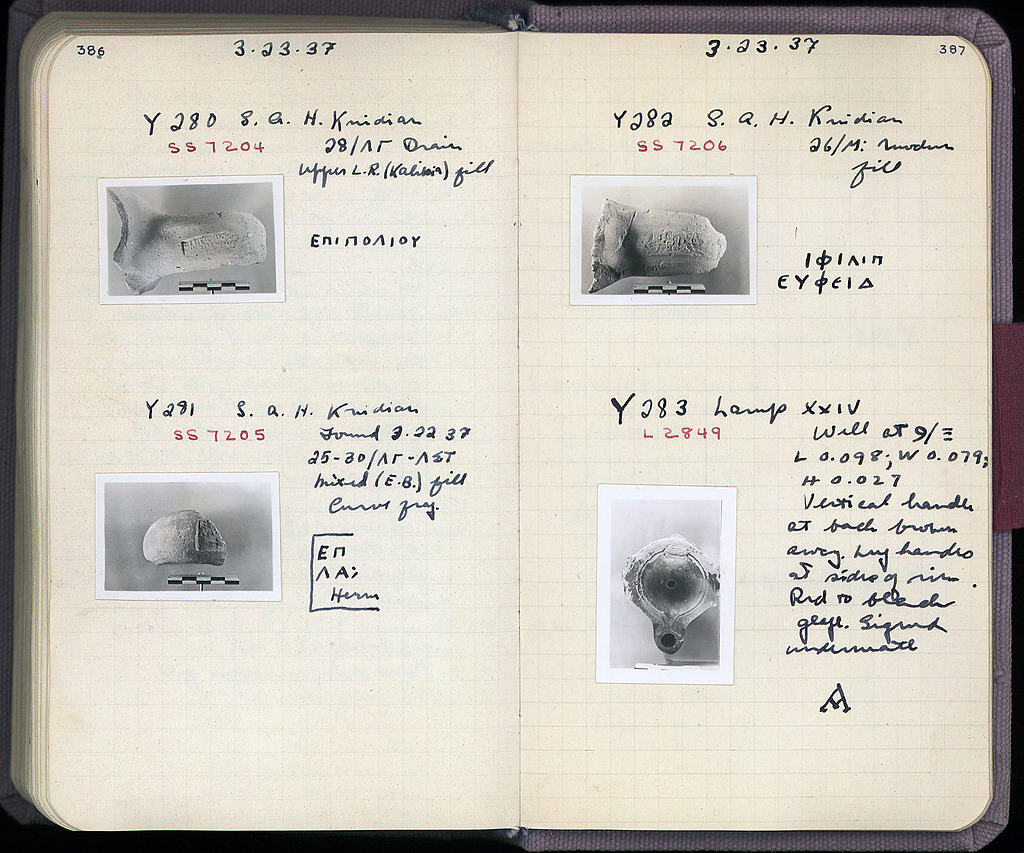 386
3·23·37
Y 280 S. A. H. Knidian
SS 7204
28/ΛΓ Drain
Upper L.R. (Kalikia) fill
ΕΠΙΠΟΛΙΟΥ
Y 281 S. A. H. Knidian
SS 7205
Found 3.22 37
25-30/ΛΓ-ΛΣΤ
mixed (E.B.) fill
Curved frag.
ΕΠ
ΛΑ
Herm
387
3·23·37
Y 282 S. A. H. Knidian
SS 7206
26/Μ: modern
fill
ΙΦΙΛΙΠ
ΕΥΦΕΙΔ
Y 283 Lamp XXIV
L 2849
Well at 9/Ξ
L 0.098; W 0.079;
H 0.027
Vertical handle
at back broken
away. Lug handles
at sides of rim.
Red to black
glaze. Signed
underneath
A